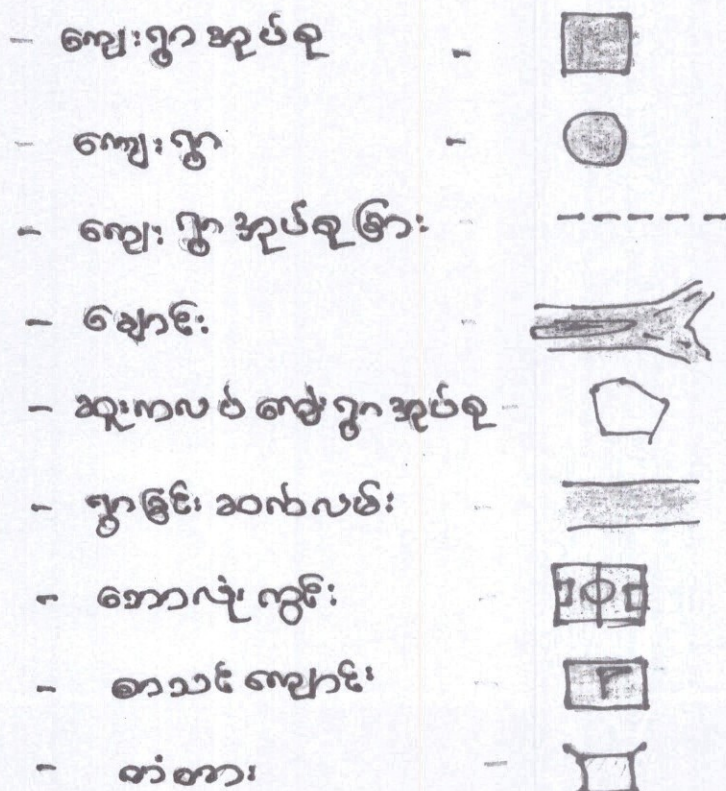 - ကျေးရွာ အုပ်စု -
- ကျေးရွာ -
- ကျေးရွာ အုပ်စု ခြား -
- ချောင်း -
- ဆူးကလပ် ကျေးရွာ အုပ်စု -
- ရွာချင်း ဆက်လမ်း -
- ဘောလုံး ကွင်း -
- စာသင် ကျောင်း -
- တံတား -